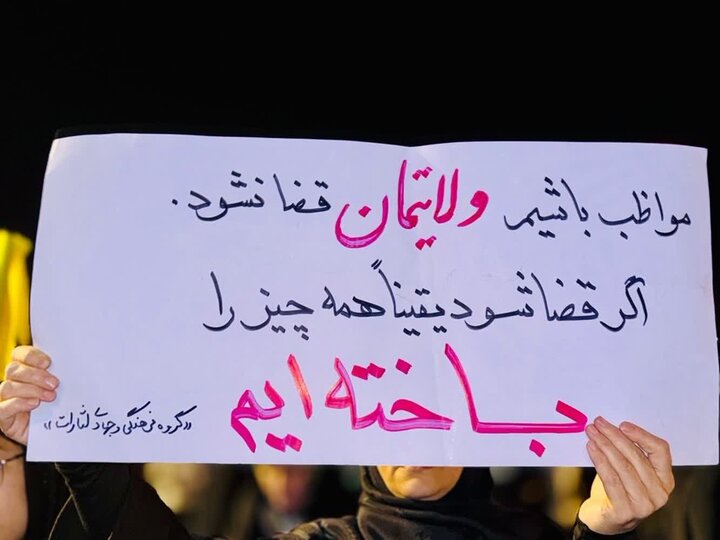 مواظب باشیم ولایتمان قضا نشود.
اگر قضا شود یقیناً همه چیز را
باخته ایم
«گروه فرهنگی و جهادی لثارات»